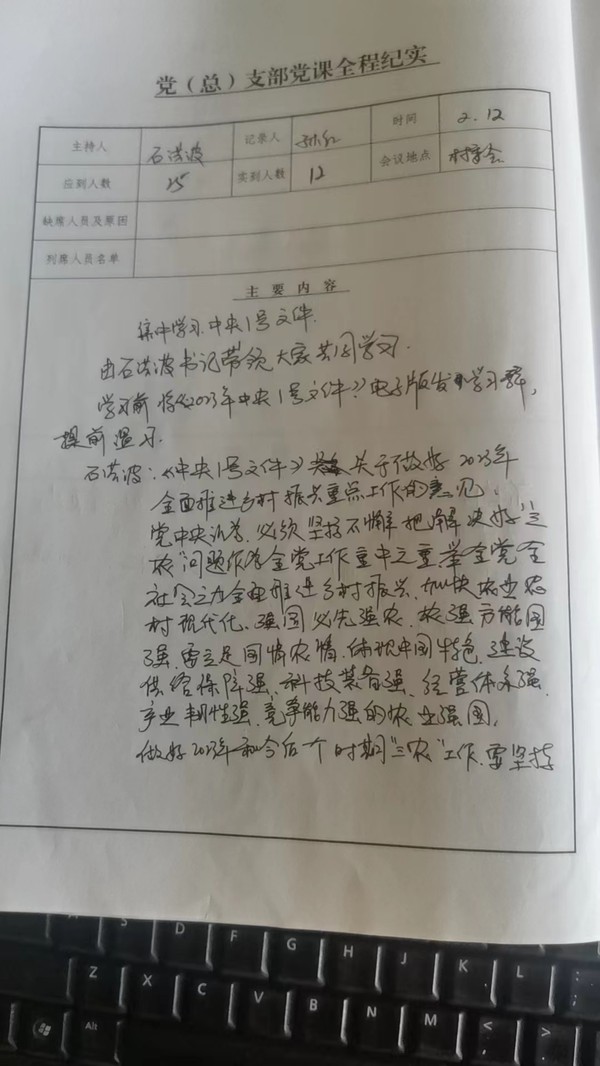 党（总）支部党课全程纪实
主持人 石洪波 记录人 孙红 时间 2.12
应到人数 25 实到人数 12 会议地点 村委会
缺席人员及原因
列席人员名单
主要内容
集中学习中央1号文件.
由石洪波书记带领大家共同学习.
学习前将《2023年中央1号文件》电子版发到学习群,
提前温习.
石洪波:《中央1号文件》关于做好2023年
全面推进乡村振兴重点工作的意见、
党中央认为,必须坚持不懈把解决好"三
农"问题作为全党工作重中之重举全党全
社会之力全面推进乡村振兴,加快农业农
村现代化、强国必先强农,农强方能国
强,要立足国情农情,体现中国特色,建设
供给保障强、科技装备强、经营体系强、
产业韧性强、竞争能力强的农业强国,
做好2023年和今后个时期"三农"工作,要坚持
A S D F G H J K L
Z X C V B N M < >
Alt